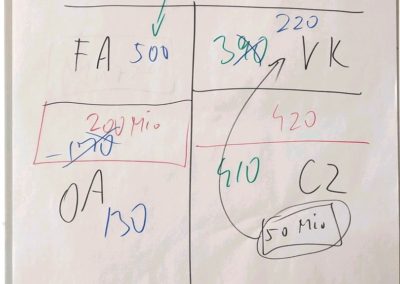 220
FA 500 390 VK
200 Mio 420
-170
410 C2
OA
130
50 Mio